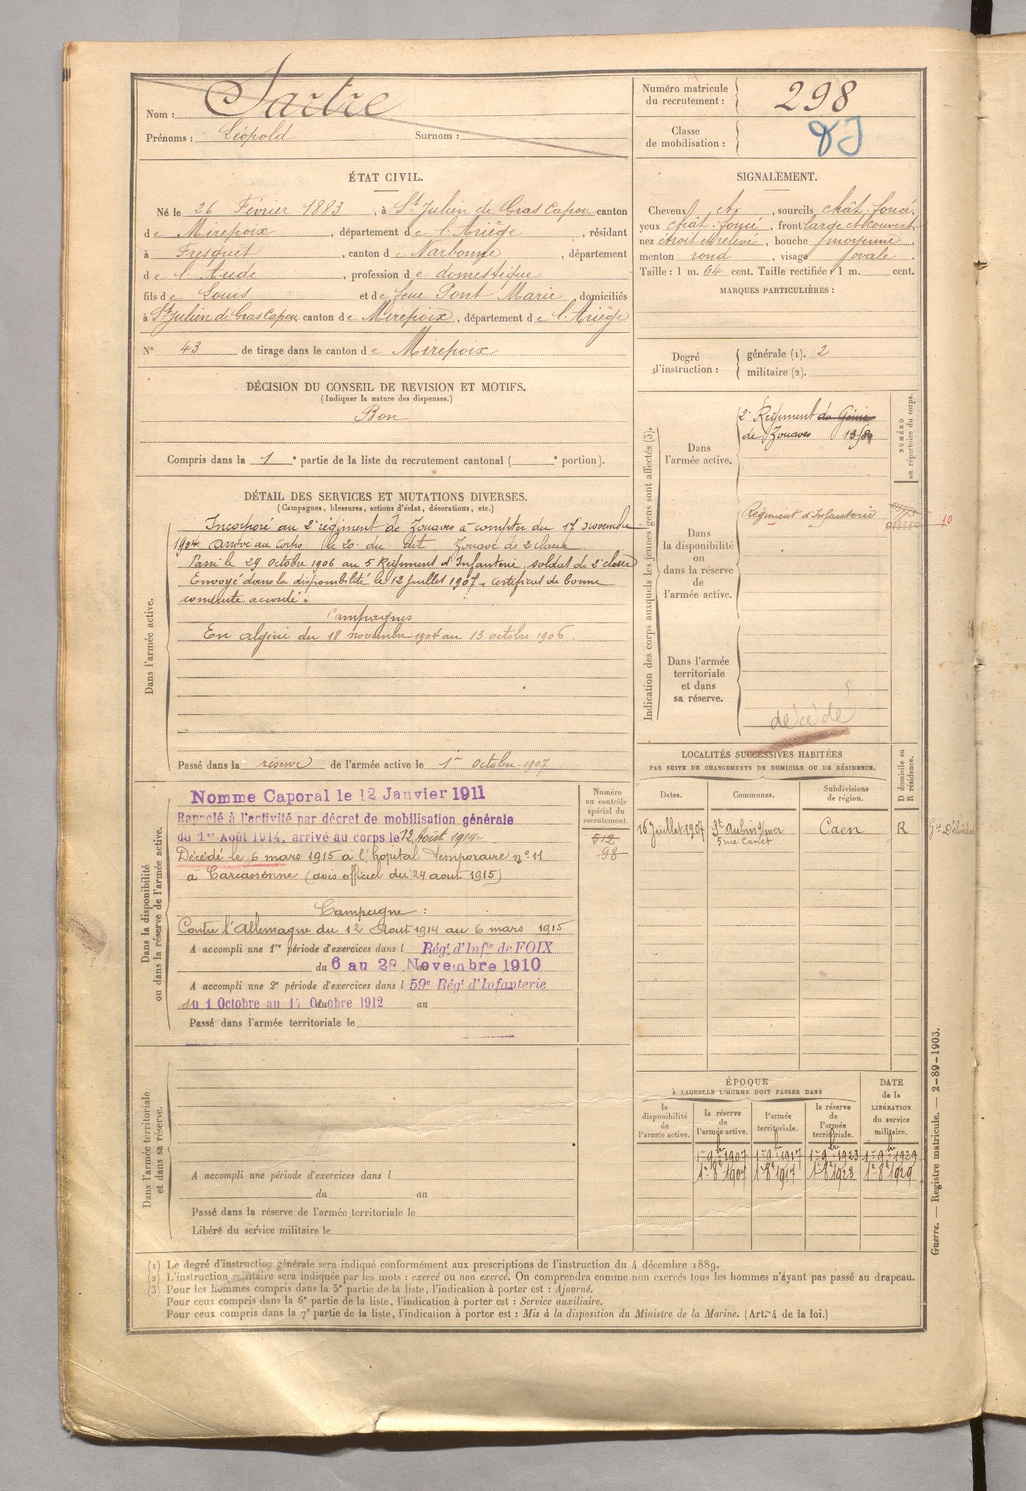 Nom : Sartre
Prénoms : Léopold Surnom :
Numéro matricule du recrutement : 298
Classe de mobilisation :
ÉTAT CIVIL.
Né le 26 Février 1883, à St Julien de Gras Capou canton
de Mirepoix, département de l'Ariège, résidant
à Fresquet, canton de Narbonne, département
de l'Aude, profession de domestique
fils de Louis et de feue Pont Marie domiciliés
à St Julien de Gras Capou canton de Mirepoix, département de l'Ariège
N° 43 de tirage dans le canton de Mirepoix
SIGNALEMENT.
Cheveux et, sourcils chât. foncé,
yeux chât. foncé, front large et découvert,
nez étroit et relevé, bouche moyenne,
menton rond, visage ovale.
Taille : 1 m. 64 cent. Taille rectifiée : 1 m. cent.
MARQUES PARTICULIÈRES :
Degré d'instruction :
générale (1). 2
militaire (2).
DÉCISION DU CONSEIL DE REVISION ET MOTIFS.
(Indiquer la nature des dispenses.)
Bon
Compris dans la 1e partie de la liste du recrutement cantonal ( e portion).
Indication des corps auxquels les jeunes gens sont affectés (3).
NUMÉRO au répertoire du corps.
Dans l'armée active.
2e Régiment du Génie
de Zouaves
Dans la disponibilité ou dans la réserve de l'armée active.
Régiment d'Infanterie
10
Dans l'armée territoriale et dans sa réserve.
décédé
DÉTAIL DES SERVICES ET MUTATIONS DIVERSES.
(Campagnes, blessures, actions d'éclat, décorations, etc.)
Dans l'armée active.
Incorporé au 2e régiment de Zouaves à compter du 17 novembre
1904. Arrivé au corps le 20 du dit Zouave de 2e classe
Passé le 29 octobre 1906 au 5 Régiment d'Infanterie soldat de 2e classe
Envoyé dans la disponibilité le 12 juillet 1907. Certificat de bonne
conduite accordé.
Campagnes
En algérie du 18 novembre 1904 au 13 octobre 1906
Passé dans la réserve de l'armée active le 1er octobre 1907
LOCALITÉS SUCCESSIVES HABITÉES
PAR SUITE DE CHANGEMENTS DE DOMICILE OU DE RÉSIDENCE.
D domicile ou R résidence.
Dates. Communes. Subdivisions de région.
16 Juillet 1907 St Aubin s/mer Caen R
5 rue Canet
Dans la disponibilité ou dans la réserve de l'armée active.
Numéro au contrôle spécial du recrutement
512
98
Nommé Caporal le 12 Janvier 1911
Rappelé à l'activité par décret de mobilisation générale
du 1er Août 1914, arrivé au corps le 12 Août 1914
Décédé le 6 mars 1915 à l'hôpital temporaire n° 11
à Carcassonne (avis officiel du 24 aout 1915)
Campagne :
Contre l'Allemagne du 12 Aout 1914 au 6 mars 1915
A accompli une 1re période d'exercices dans l Régt d'Infie de FOIX
du 6 au 28 Novembre 1910
A accompli une 2e période d'exercices dans l 59e Régt d'Infanterie
du 1 Octobre au 17 Octobre 1912 au
Passé dans l'armée territoriale le
Dans l'armée territoriale et dans sa réserve.
A accompli une période d'exercices dans l
du au
Passé dans la réserve de l'armée territoriale le
Libéré du service militaire le
ÉPOQUE
À LAQUELLE L'HOMME DOIT PASSER DANS
DATE de la LIBÉRATION du service militaire.
la disponibilité de l'armée active. la réserve de l'armée active. l'armée territoriale. la réserve de l'armée territoriale.
1er 9bre 1907 1er 9bre 1917 1er 9bre 1923 1er 9bre 1929
1er 8bre 1907 1er 8bre 1917 1er 8bre 1923 1er 8bre 1929
(1) Le degré d'instruction générale sera indiqué conformément aux prescriptions de l'instruction du 4 décembre 1889.
(2) L'instruction militaire sera indiquée par les mots : exercé ou non exercé. On comprendra comme non exercés tous les hommes n'ayant pas passé au drapeau.
(3) Pour les hommes compris dans la 5e partie de la liste, l'indication à porter est : Ajourné.
Pour ceux compris dans la 6e partie de la liste, l'indication à porter est : Service auxiliaire.
Pour ceux compris dans la 7e partie de la liste, l'indication à porter est : Mis à la disposition du Ministre de la Marine. (Art. 4 de la loi.)
Guerre. — Registre matricule. — 2-89-1903.